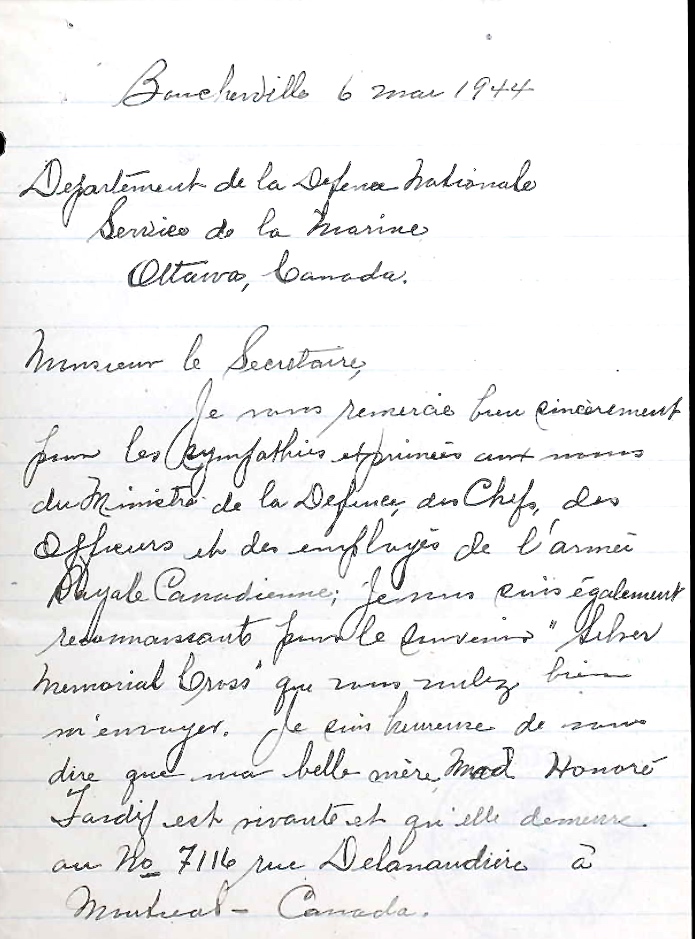 Boucherville 6 mai 1944
Département de la Défence Nationale
Service de la Marine
Ottawa, Canada.
Monsieur le Secrétaire,
Je vous remercie bien sincèrement
pour les sympathies exprimées aux noms
du Ministre de la Défence, des Chefs, des
Officiers et des employés de l'armée
Royale Canadienne; je vous suis également
reconnaissante pour le souvenir "Silver
Memorial Cross" que vous voulez bien
m'envoyer. Je suis heureuse de vous
dire que ma belle mère, Mad Honoré
Tardif est vivante et qu'elle demeure
au No 7116 rue Delanaudière à
Montreal - Canada.